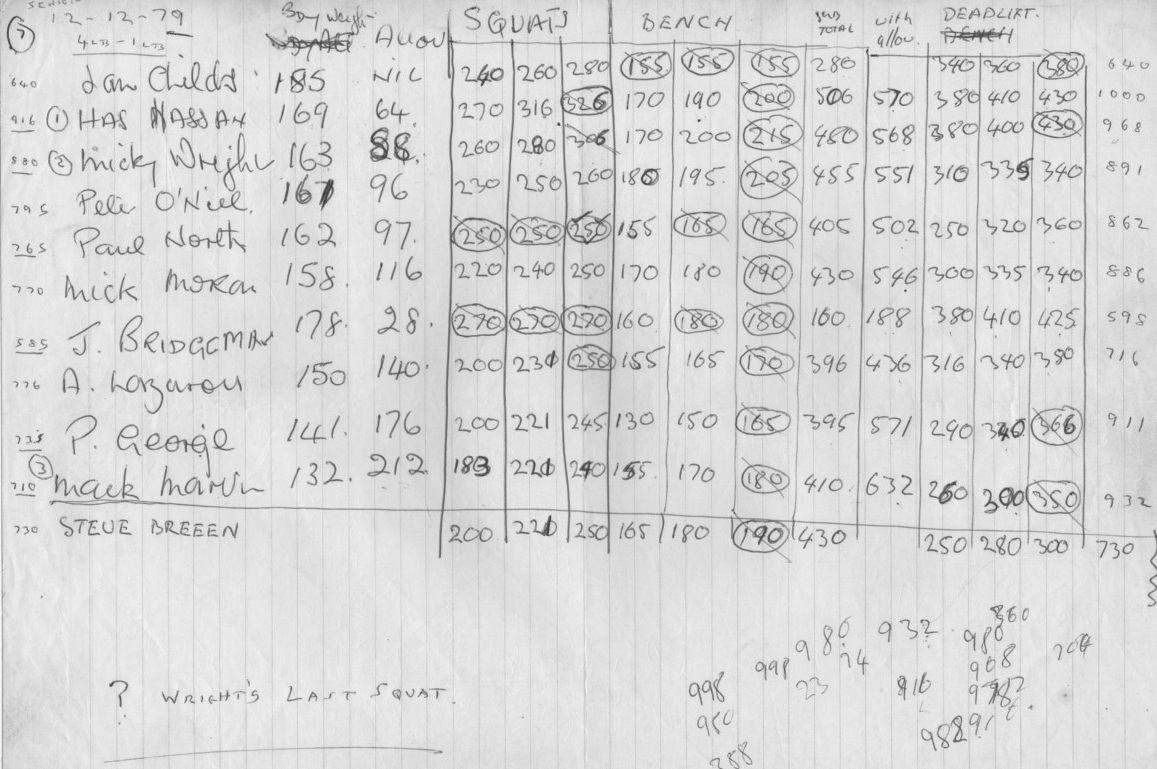 12-12-79 Body Weight Allow SQUATS BENCH SUB TOTAL with allow. DEADLIFT.
7 4 LTB - 1 LTB BENCH
640 Ian Childs 185 NIL 240 260 280 155 155 155 280 340 360 380 640
916 1 HAS HASSAN 169 64. 270 316 326 170 190 200 506 570 380 410 430 1000
880 2 Micky Wright 163 88. 260 280 306 170 200 215 480 568 380 400 430 968
795 Pete O'Niel. 167 96 230 250 260 180 195. 205 455 551 310 335 340 891
265 Paul North 162 97. 250 250 250 155 165 165 405 502 250 320 360 862
770 Mick Moran 158. 116 220 240 250 170 180 190 430 546 300 335 340 886
585 J. BRIDGEMAN 178. 28. 270 270 270 160 180 180 160 188 380 410 425 598
776 A. Lazarou 150 140. 200 231 250 155 165 170 396 436 316 340 350 716
735 P. George 141. 176 200 221 245 130 150 165 395 571 290 340 366 911
710 3 Mark Martin 132. 212. 183 221 240 155 170 180 410 632 260 300 350 932
730 STEVE BREEEN 200 221 250 165 180 190 430 250 280 300 730
360
980 932 980
998 74 968 204
998 23 916
950
982
288
? WRIGHT'S LAST SQUAT.